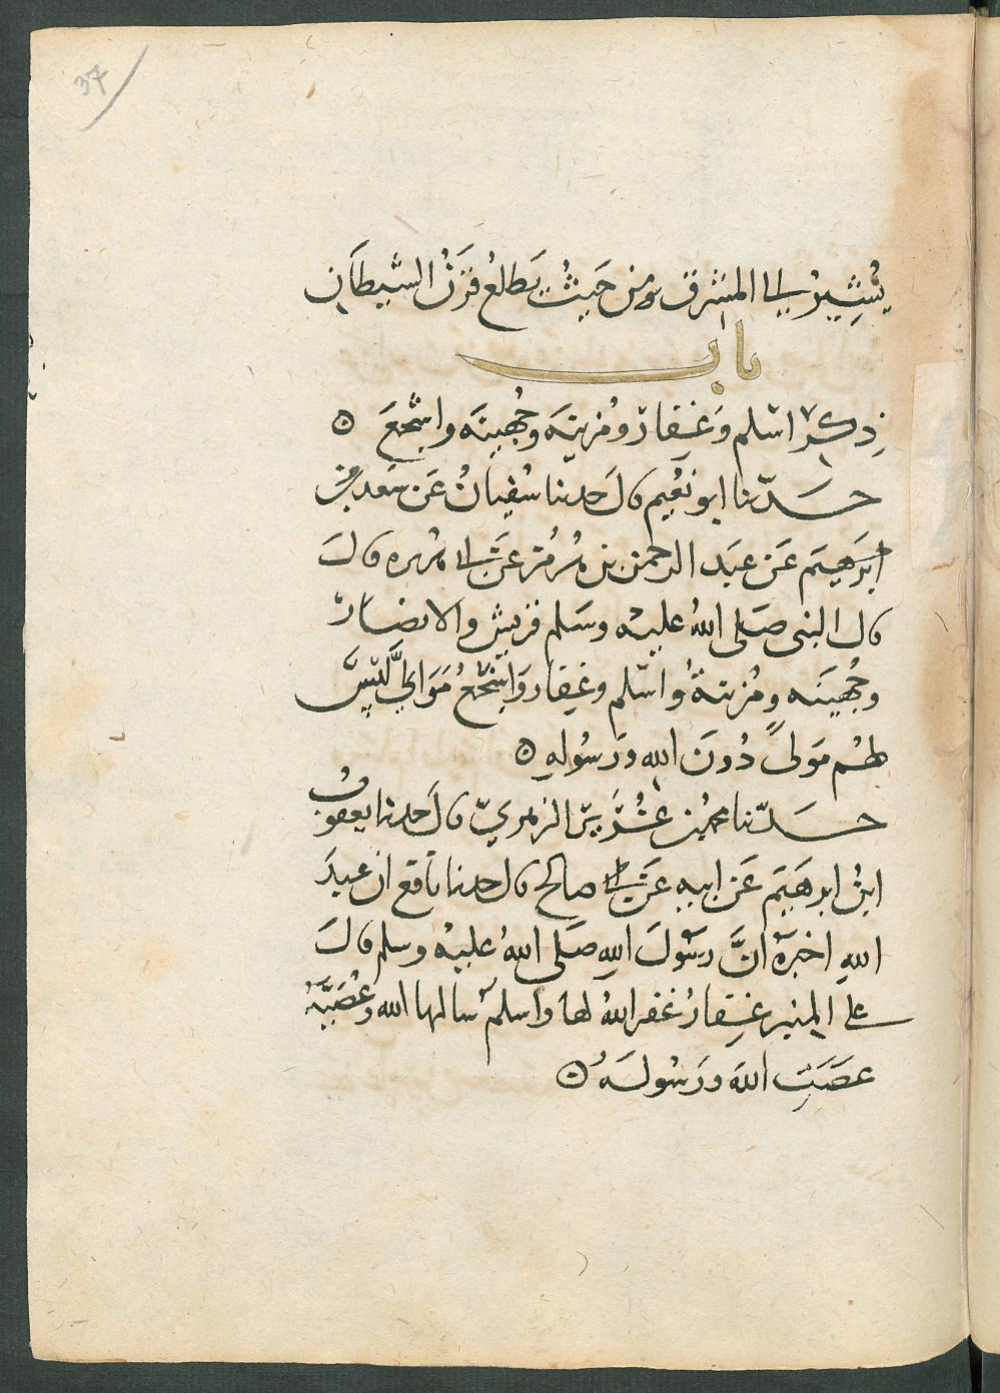 37
يُشِيرُ الى المشرق من حَيثُ يَطلعُ قَرنُ الشَّيطَانِ
باب
ذِكر اسْلم وَغِفار ومُزينَه وجُهينَه واشجَعَ ۞
حَدّثنا ابو نُعَيم قالَ حدثنا سُفيانُ عَن سَعد بن
ابرَهيَم عَن عَبد الرحمن بن هُرمُز عَن ابى هريره قالَ
قال النبى صَلى اللهُ عليه وسَلم قريش والانصَار
وجُهينَه ومُزينةُ واسْلم وغِفار وَاشجَعُ مَوَاليَّ ليسَ
لهُم مَولىً دُونَ الله ورَسُولهِ ۞
حَدّثنا محمدُ بن غُرَير الزهريّ قالَ حدثنا يعقوبُ
ابنُ ابرهَيَم عَن ابيه عَن صالح قال حدثنا نافع ان عبدَ
اللهِ اخبَرَهُ انَّ رسُولَ اللهِ صَلى اللهُ عليه وسلم قالَ
على المنبر غِفارُ غفر اللهُ لها واسلمُ سالمها الله وعُصَيَّهُ
عصَتِ اللهَ ورَسُولهُ ۞